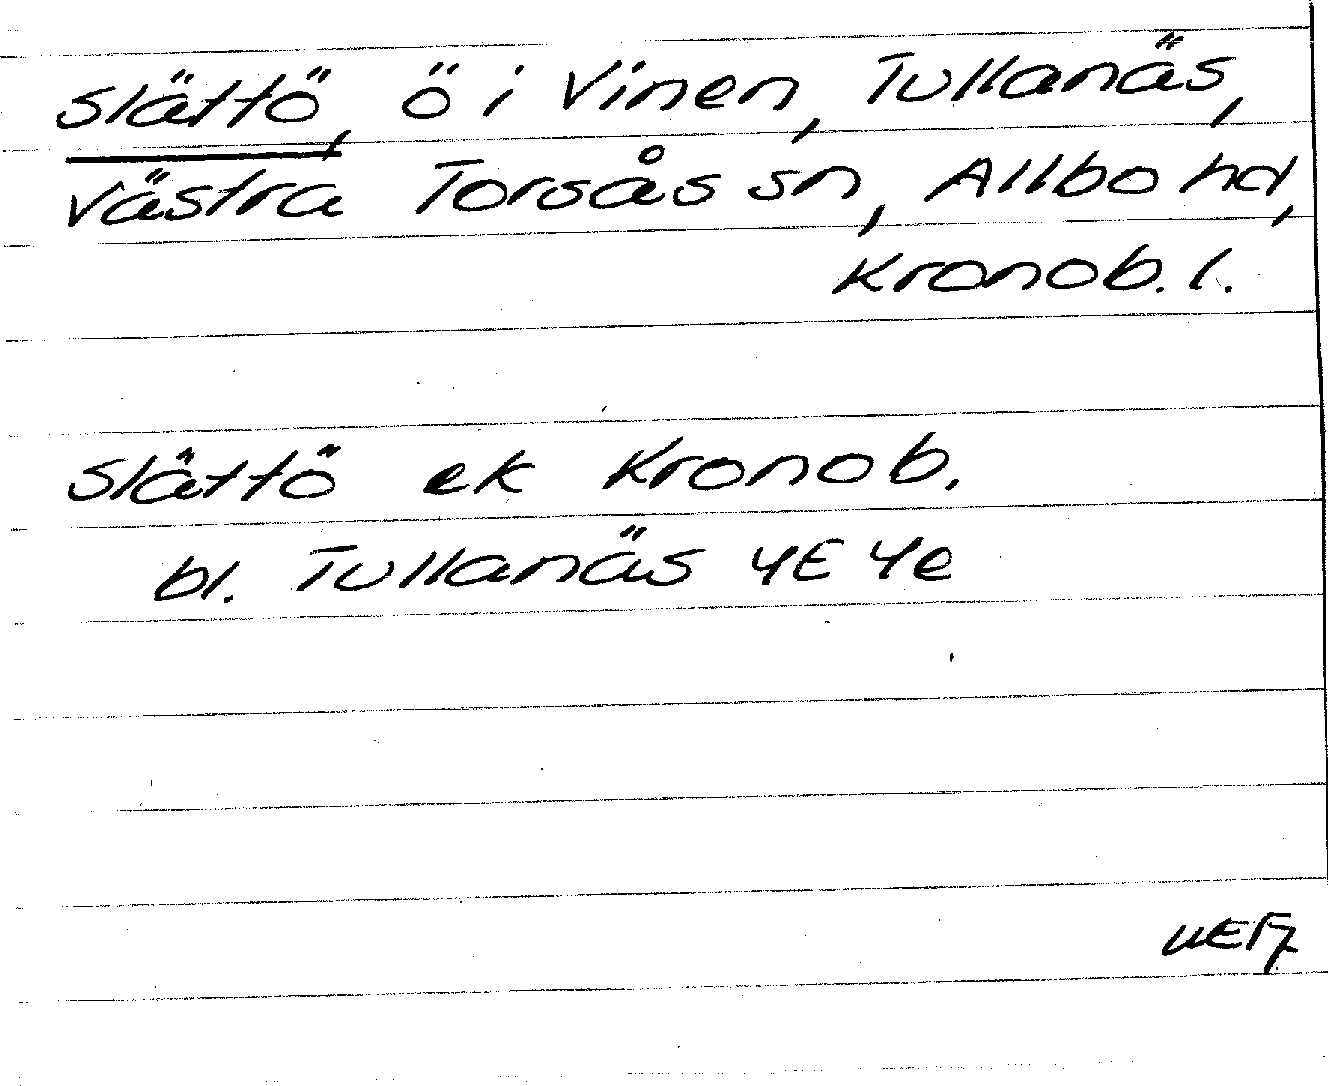 Slättö, ö i Vinen, Tullanäs,
Västra Torsås sn, Allbo hd,
Kronob. l.
Slättö ek Kronob.
bl. Tullanäs 4E 4e